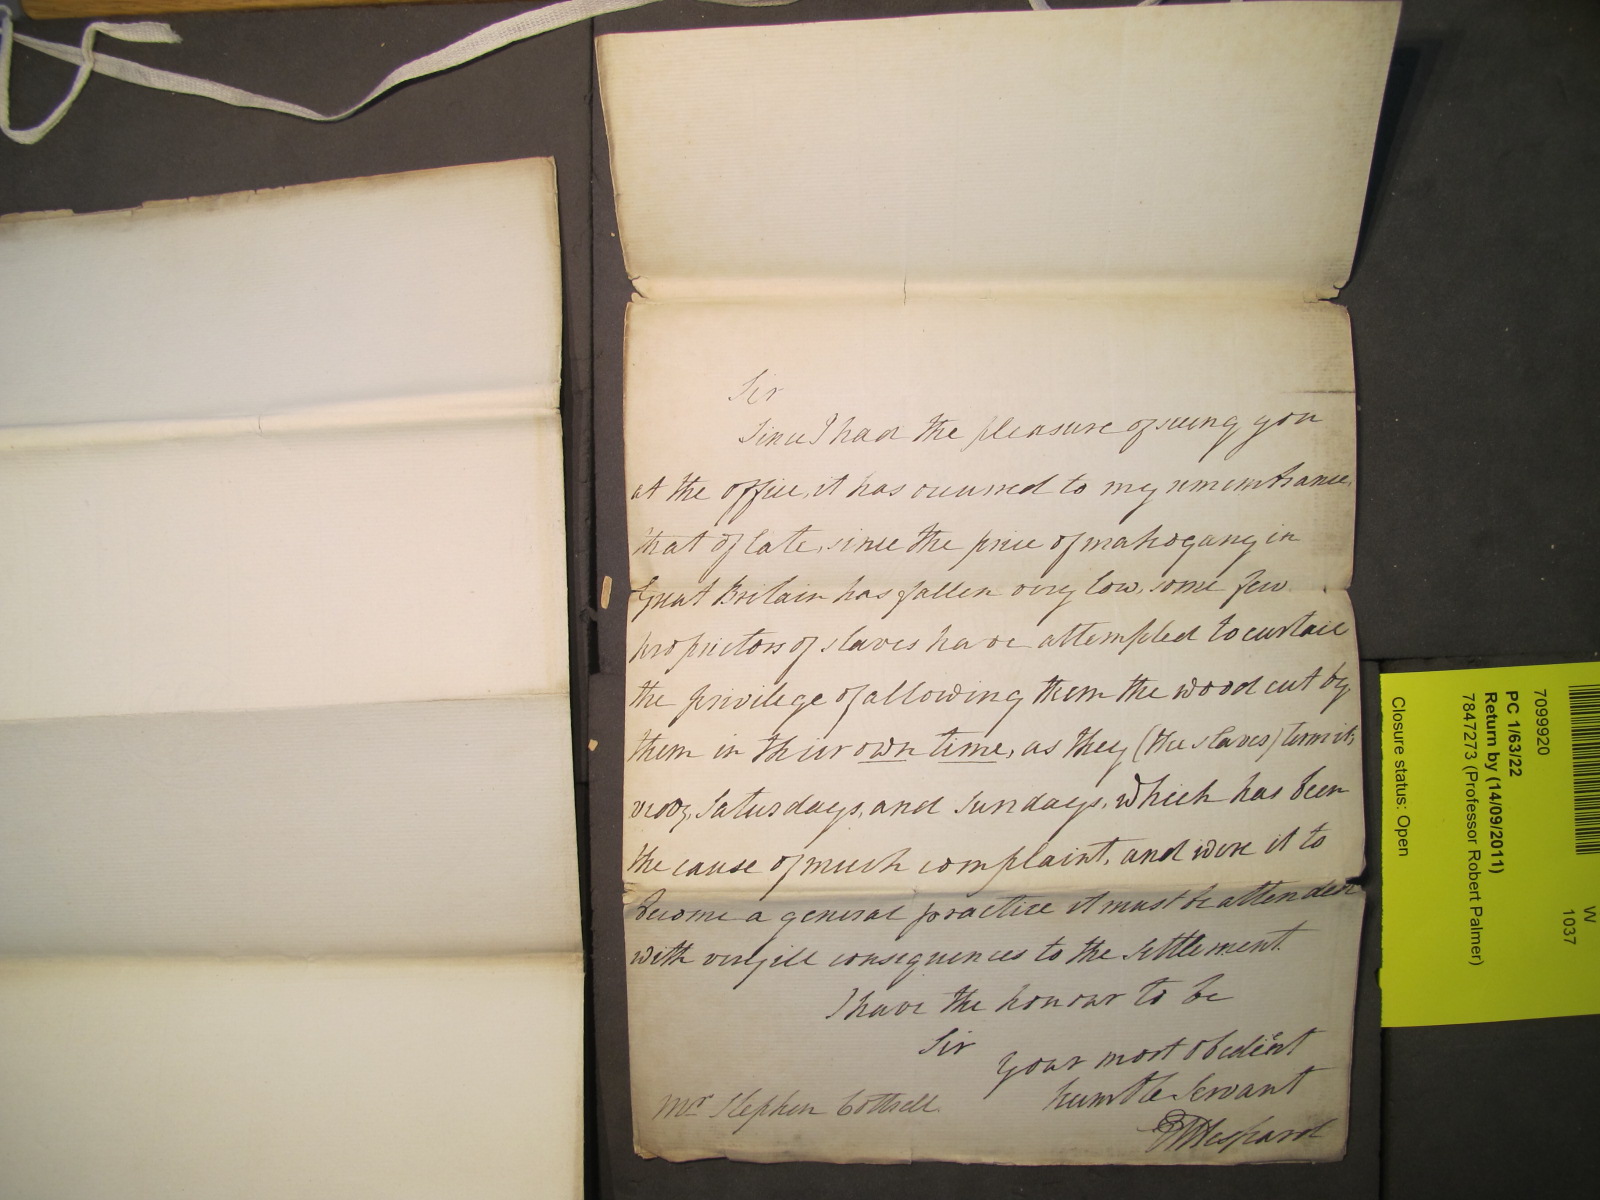 Sir
Since I had the pleasure of seeing you
at the office, it has occurred to my remembrance,
that of late, since the price of mahogany in
Great Britain has fallen very low, some few
proprietors of slaves have attempted to curtail
the privilege of allowing them the wood cut by
them in their own time, as they (the slaves) term it,
Saturdays, and Sundays, which has been
the cause of much complaint, and were it to
become a general practice it must be attended
with very ill consequences to the settlement.
I have the honour to be
Sir
your most obedient
humble Servant
Mr Stephen Cottrell.
Despard
W
1037
7099920
PC 1/63/22
Return by (14/09/2011)
7847273 (Professor Robert Palmer)
Closure status: Open